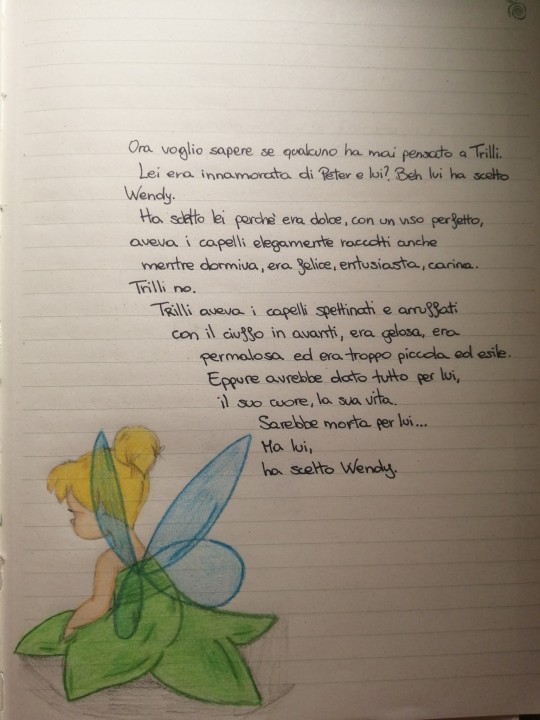 Ora voglio sapere se qualcuno ha mai pensato a Trilli.
Lei era innamorata di Peter e lui? Beh lui ha scelto
Wendy.
Ha scelto lei perchè era dolce, con un viso perfetto,
aveva i capelli elegamente raccolti anche
mentre dormiva, era felice, entusiasta, carina.
Trilli no.
Trilli aveva i capelli spettinati e arruffati
con il ciuffo in avanti, era gelosa, era
permalosa ed era troppo piccola ed esile.
Eppure avrebbe dato tutto per lui,
il suo cuore, la sua vita.
Sarebbe morta per lui...
Ma lui,
ha scelto Wendy.